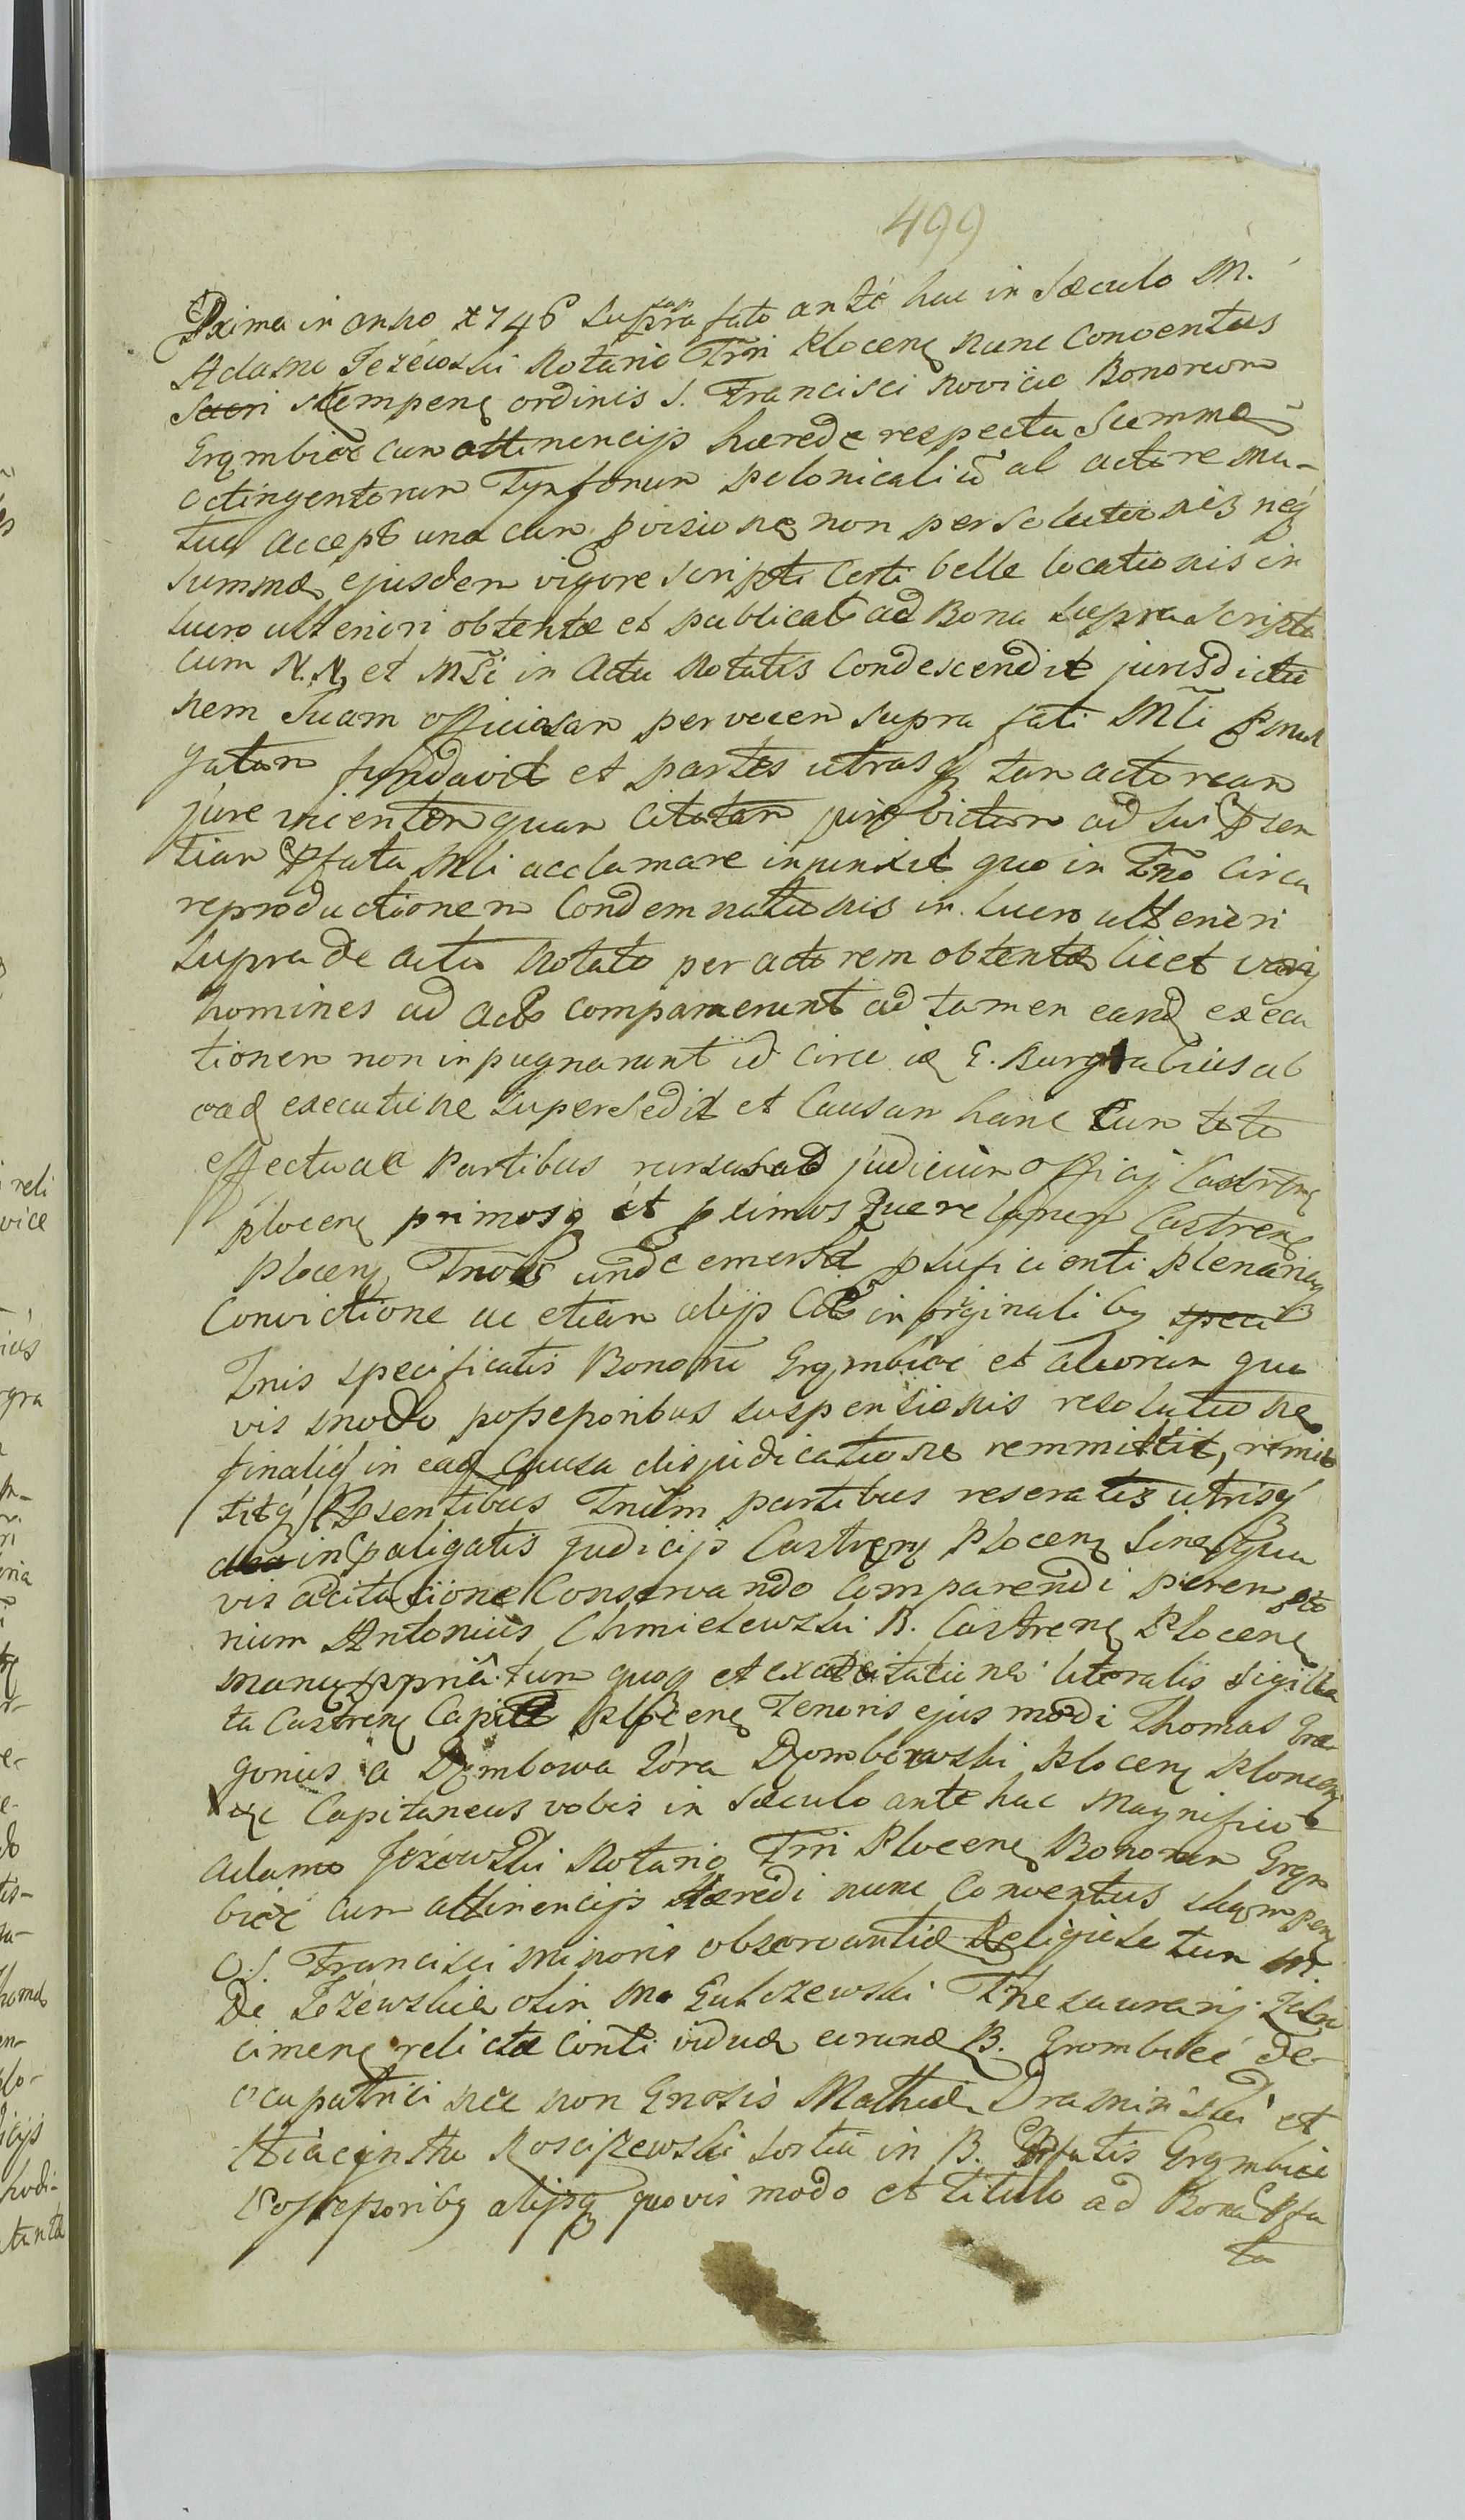 499
Pxima in anno 1746 supra fato ante hac in Sæculo M.
Adamo Jeżewski Notario Trri Plocen nunc Conventus
Skempen ordinis S. Francisci Novicio Bonorum
Grąmbice cum attinencijs hærede respectu Summæ
octingentorum Tynforum polonicaliũ ab actore mu-
tuo accept una cum provisione non persolutionis
Summæ ejusdem vigore scripti Certi belle locationis in
lucro ulteriori obtentæ et publicatæ ad Bona supra scripta
cum N. N. et Mli in Actu Notatis Condescendit jurisdictio
nem Suam officiosam per vocem supra fati Mli Pmul
gatam fundavit et partes utrasq tam actoream
jure vincentem quam citatam jure victam ad sui Psen
tiam Pfato Mli acclamare injunxit quo in Tno Circa
reproductionem Condemnationis in lucro ulteriori
supra de actu Notato per actorem obtentæ licet varij
homines ad acta comparuerunt ad tamen eand execu
tionem non inpugnarunt id circo id G. Burgrabius ab
ead executione supersedit et Causam hanc Cum toto
effectu ac Partibus rursus ad judicium Officij Castren
plocen primos q et pximos Querelarum Castren
Plocen Tnos unde emersit p suficienti Plenariaq
Convictione ac etiam alijs in originali
Tnis specificatis Bonorũ Grąmbice et aliorum quo
vis modo possessoribus suspensionis resolutione
finaliq in ead Causa disjudicatione remmittit, remit
titq Psentibus Tnum partibus reseratis utrisq
in paligatis judicijs Castren Plocen Sine qua
vis adcitatione Conservando Comparendi perempto
rium Antonius Chmielewski B. Castren Plocen
manu ppria tum quoq et ex adcitatione literalis sigilla
ta Castren Capit Plocen Tenoris ejus modi Thomas
gonius a Dąmbowa Góra Dąmbrowski Plocen Plonen
Capitaneus vobis in Sæculo ante hac Magnifico
Adamo Jeżewski Notario Trri Plocen Bonorum Grąm
bice cum attinencijs Hæredi nunc Conventus Skęmpen
O. S. Francisci Minoris observantiæ Religioso tum M.
De Jeżewskie olim Mo Gulczewski Thesaurarij
cimens relictæ Conti viduæ eorund B. Grombice de-
ocupatrici nec non Gnosis Mathiæ Draminski et
Hiacintho Roscizewski sortiũ in B. Pfatis Grąmbice
Possessoribq alijsq quovis modo et titulo ad Bona Pfa
ta